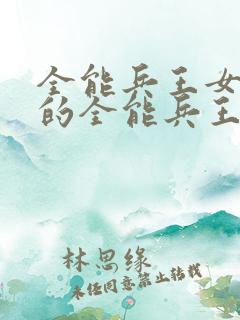 全能兵王女
的全能兵王
林思缘
未经同意禁止转载